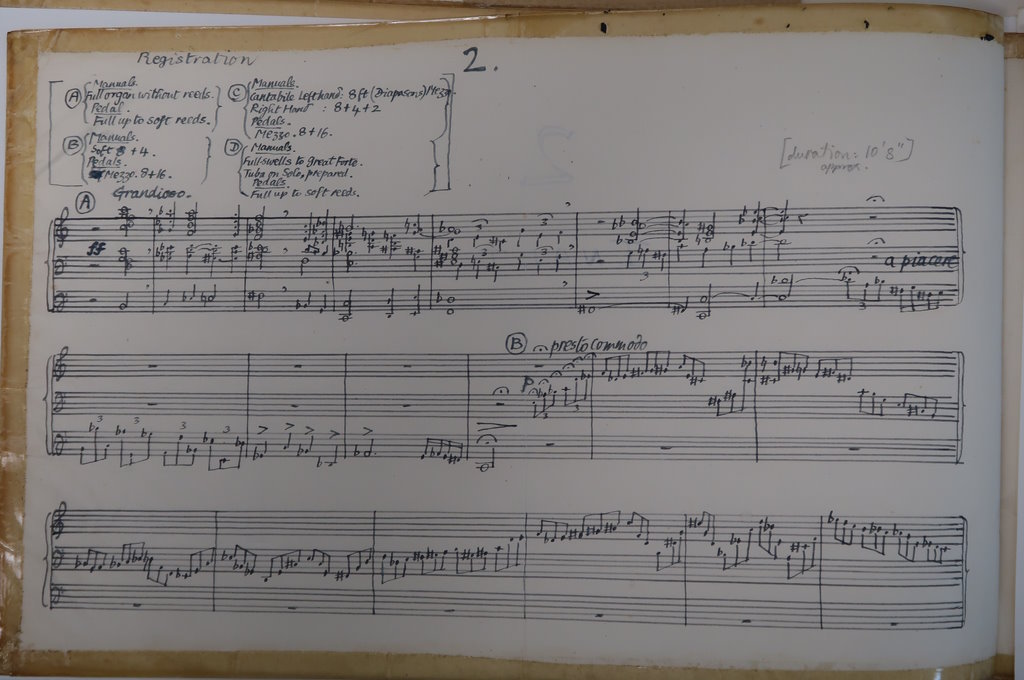 Registration
2.
A
Manuals.
Full organ without reeds.
Pedal.
Full up to soft reeds.
B
Manuals.
Soft 8 + 4.
Pedals.
Mezzo. 8+16.
C
Manuals.
Cantabile Left hand: 8ft (Diapasons) Mezzo.
Right Hand : 8+4+2
Pedals.
Mezzo. 8+16.
D
Manuals.
Full swells to great Forte.
Tuba on Solo, prepared.
Pedals.
Full up to soft reeds.
[duration: 10'8"]
approx.
A
Grandioso.
ff
3
3
3
3
a piacere
B
presto commodo
p
3
3
3
3
3
3